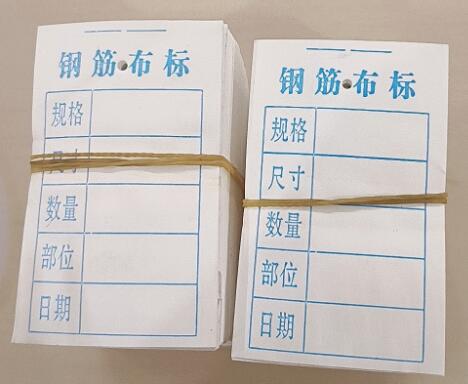 钢筋布标
规格
尺寸
数量
部位
日期
钢筋布标
规格
尺寸
数量
部位
日期